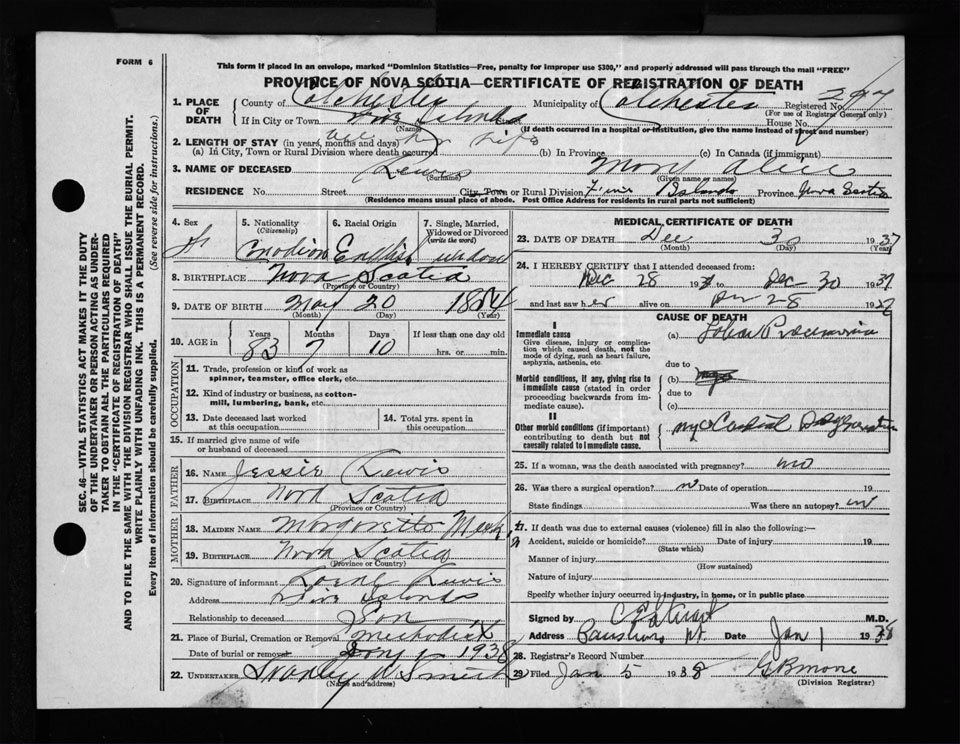 FORM 6
This form if placed in an envelope, marked "Dominion Statistics—Free, penalty for improper use $300," and properly addressed will pass through the mail "FREE"
PROVINCE OF NOVA SCOTIA—CERTIFICATE OF REGISTRATION OF DEATH
1. PLACE OF DEATH
County of Colchester Municipality of Colchester Registered No.
(For use of Registrar General only)
If in City or Town Five Islands Street House No.
(Name) (If death occurred in a hospital or institution, give the name instead of street and number)
2. LENGTH OF STAY (in years, months and days)
(a) In City, Town or Rural Division where death occurred all her life (b) In Province (c) In Canada (if immigrant)
3. NAME OF DECEASED Lewis Mary Alice
(Surname) (Given name or names)
RESIDENCE No. Street City, Town or Rural Division Five Islands Province Nova Scotia
(Residence means usual place of abode. Post Office Address for residents in rural parts not sufficient)
4. Sex F
5. Nationality (Citizenship) Canadian
6. Racial Origin English
7. Single, Married, Widowed or Divorced (write the word) widow
8. BIRTHPLACE Nova Scotia
(Province or Country)
9. DATE OF BIRTH May 20 1854
(Month) (Day) (Year)
10. AGE in Years Months Days If less than one day old
83 7 10 hrs. or min.
OCCUPATION
11. Trade, profession or kind of work as spinner, teamster, office clerk, etc.
12. Kind of industry or business, as cotton-mill, lumbering, bank, etc.
13. Date deceased last worked at this occupation
14. Total yrs. spent in this occupation
15. If married give name of wife or husband of deceased
FATHER
16. NAME Jessie Lewis
17. BIRTHPLACE Nova Scotia
(Province or Country)
MOTHER
18. MAIDEN NAME
19. BIRTHPLACE Nova Scotia
(Province or Country)
20. Signature of informant Lorne Lewis
Address Five Islands
Relationship to deceased Son
21. Place of Burial, Cremation or Removal Methodist
Date of burial or removal Jany 1 1938
22. UNDERTAKER W Smith
(Name and address)
MEDICAL CERTIFICATE OF DEATH
23. DATE OF DEATH Dec 30 1937
(Month) (Day) (Year)
24. I HEREBY CERTIFY that I attended deceased from:
Dec 28 1937 to Dec 30 1937
and last saw her alive on Dec 28 1937
CAUSE OF DEATH
I
Immediate cause
Give disease, injury or complication which caused death, not the mode of dying, such as heart failure, asphyxia, asthenia, etc.
(a) Lobar Pneumonia
due to
Morbid conditions, if any, giving rise to immediate cause (stated in order proceeding backwards from immediate cause).
(b)
due to
(c)
II
Other morbid conditions (if important) contributing to death but not causally related to immediate cause.
Myocardial Degeneration
25. If a woman, was the death associated with pregnancy? no
26. Was there a surgical operation? n Date of operation 19
State findings Was there an autopsy?
27. If death was due to external causes (violence) fill in also the following:—
Accident, suicide or homicide? Date of injury 19
(State which)
Manner of injury
(How sustained)
Nature of injury
Specify whether injury occurred in industry, in home, or in public place
Signed by M.D.
Address Date Jan 1 1938
28. Registrar's Record Number
29. Filed Jan 5 1938
(Division Registrar)
SEC. 46—VITAL STATISTICS ACT MAKES IT THE DUTY
OF THE UNDERTAKER OR PERSON ACTING AS UNDER-
TAKER TO OBTAIN ALL THE PARTICULARS REQUIRED
IN THE "CERTIFICATE OF REGISTRATION OF DEATH"
AND TO FILE THE SAME WITH THE DIVISION REGISTRAR WHO SHALL ISSUE THE BURIAL PERMIT.
WRITE PLAINLY WITH UNFADING INK. THIS IS A PERMANENT RECORD.
Every item of information should be carefully supplied. (See reverse side for instructions.)